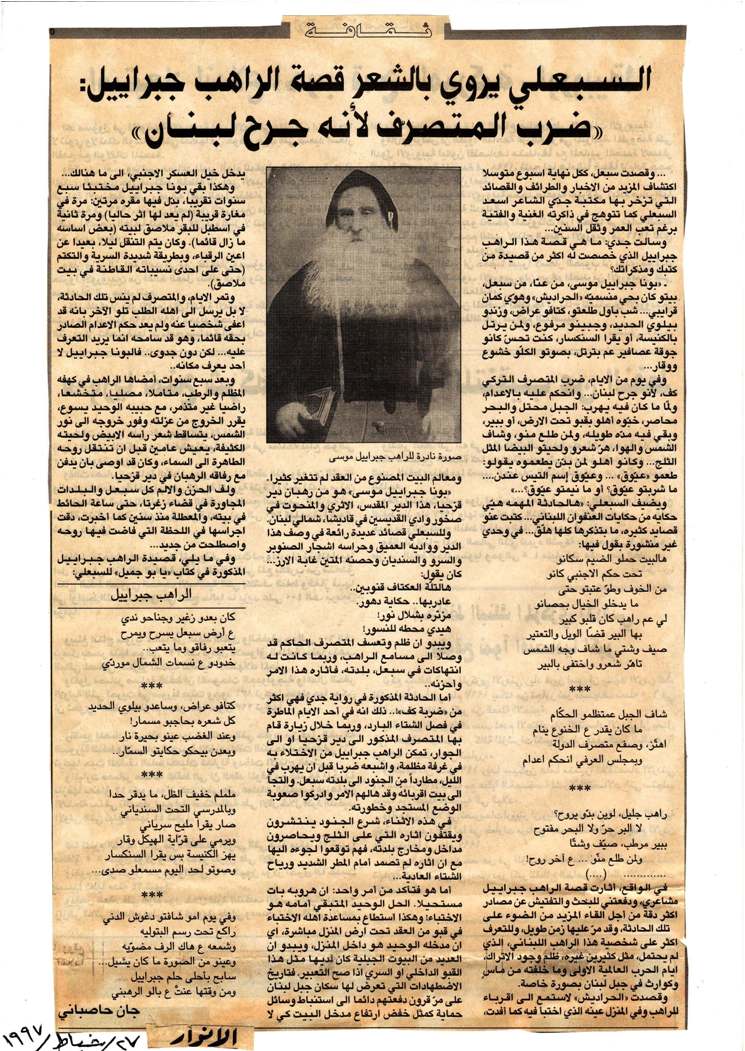 ثقافة
السبعلي يروي بالشعر قصة الراهب جبراييل:
«ضرب المتصرف لأنه جرح لبنان»
... وقصدت سبعل، ككل نهاية اسبوع متوسلا
اكتشاف المزيد من الاخبار والطرائف والقصائد
التي تزخر بها مكتبة جدي الشاعر اسعد
السبعلي كما تتوهج في ذاكرته الغنية والفتية
برغم تعب العمر وثقل السنين...
وسألت جدي: ما هي قصة هذا الراهب
جبراييل الذي خصصت له اكثر من قصيدة من
كتبك ومذكراتك؟
ـ «بونا جبراييل موسى، من عنّا، من سبعل،
بيتو كان بحي منسميّه «الحراديش»، وهوّي كمان
قرايبي... شب بأول طلعتو، كتافو عراض، وزندو
بيلوي الحديد، وجبينو مرفوع، ولمن يرتل
بالكنيسة، أو يقرا السنكسار، كنت تحسّ كانو
جوقة عصافير عم بترتل، بصوتو الكلّو خشوع
ووقار...
وفي يوم من الايام، ضرب المتصرف التركي
كف، لأنو جرح لبنان... وانحكم عليه بالاعدام،
ولمّا ما كان فيه يهرب: الجبل محتل والبحر
محاصر، خبّوه أهلو بقبو تحت الارض، أو ببير،
وبقي فيه مدّه طويله، ولمن طلع منو، وشاف
الشمس والهوا، هرّ شعرو ولحيتو البيضا المتل
الثلج... وكانو أهلو لمن بدّن يطعموه يقولو:
طعمو «عيّوق»... وعيّوق إسم التيس عندن....
ما شربتو عيّوق؟ أو ما نيمتو عيّوق؟...»
ويضيف السبعلي: «هالحادثة المهمه هيّي
حكايه من حكايات العنفوان اللبناني... كتبت عنو
قصايد كتيره، ما بتذكرها كلها هلّق... في وحدي
غير منشورة بقول فيها:
هالبيت حملو الضيم سكانو
تحت حكم الاجنبي كانو
من الخوف وطوّ عتبتو حتى
ما يدخلو الخيال بحصانو
لي عم راهب كان قلبو كبير
بها البير قضّا الويل والتعتير
وصيف وشتي ما شاف وجه الشمس
تاهر شعرو واختفى بالبير
***
شاف الجبل عمتظلمو الحكّام
ما كان يقدر ع الخنوع ينام
اهتز، وصفع متصرف الدولة
وبمجلس العرفي انحكم اعدام
***
راهب جليل، لوين بتو يروح؟
لا البر حرّ ولا البحر مفتوح
ببير مرطب، صيّف وشتّا
ولن طلع منّو... ع آخر روح!
............. (....)
في الواقع، أثارت قصة الراهب جبراييل
مشاعري، ودفعتني للبحث والتفتيش عن مصادر
اكثر دقة من أجل القاء المزيد من الضوء على
تلك الحادثة، وقد مرّ عليها زمن طويل، وللتعرف
اكثر على شخصية هذا الراهب اللبناني، الذي
لم يحتمل، مثل كثيرين غيره، ظلم وجود الأتراك،
أيام الحرب العالمية الاولى وما خلفته من مآس
وكوارث في جبل لبنان بصورة خاصة.
وقصدت «الحراديش» لاستمع الى اقرباء
للراهب وفي المنزل عينه الذي اختبأ فيه كما أفدت،
صورة نادرة للراهب جبراييل موسى
ومعالم البيت المصنوع من العقد لم تتغير كثيرا.
«بونا جبراييل موسى» هو من رهبان دير
قزحيا، هذا الدير المقدس، الأثري والمنحوت في
صخور وادي القديسين في قاديشا، شمالي لبنان.
وللسبعلي قصائد عديدة رائعة في وصف هذا
الدير وواديه العميق وحراسه اشجار الصنوبر
والسرو والسنديان وحصنه المتين غابة الارز...
كان يقول:
هالتلّة العكتاف قنوبين.
عادربها.. حكاية دهور.
مزنّره بشلال نور!
هيدي محطه للنسور!
ويبدو ان ظلم وتعسف المتصرف الحاكم قد
وصلا الى مسامع الراهب، وربما كانت له
انتهاكات في سبعل، بلدته، فأثاره هذا الامر
وأحزنه..
أما الحادثة المذكورة في رواية جدي فهي اكثر
من «ضربة كف».. ذلك انه في أحد الايام الماطرة
في فصل الشتاء البارد، وربما خلال زيارة قام
بها المتصرف المذكور الى دير قزحيا او الى
الجوار، تمكن الراهب جبراييل من الاختلاء به
في غرفة مظلمة، وأشبعه ضربا قبل ان يهرب في
الليل، مطارداً من الجنود الى بلدته سبعل. والتجأ
الى بيت اقربائه وقد هالهم الامر وأدركوا صعوبة
الوضع المستجد وخطورته.
في هذه الأثناء، شرع الجنود ينتشرون
ويقتفون آثاره التي على الثلج ويحاصرون
مداخل ومخارج بلدته، فهم توقعوا لجوءه اليها
مع ان آثاره لم تصمد أمام المطر الشديد ورياح
الشتاء العاتية...
أما هو فتأكد من أمر واحد: ان هروبه بات
مستحيلا. الحل الوحيد المتبقي أمامه هو
الاختباء: وهكذا استطاع بمساعدة أهله الاختباء
في قبو من العقد تحت أرض المنزل مباشرة، أي
ان مدخله الوحيد هو داخل المنزل، ويبدو ان
العديد من البيوت الجبلية كان لديها مثل هذا
القبو الداخلي او السري اذا صح التعبير. فتاريخ
الاضطهادات التي تعرض لها سكان جبل لبنان
على مرّ قرون دفعتهم دائما الى استنباط وسائل
حماية كمثل خفض ارتفاع مدخل البيت كي لا
يدخل خيل العسكر الاجنبي، الى ما هنالك...
وهكذا بقي بونا جبراييل مختبئا سبع
سنوات تقريبا، بدّل فيها مقره مرتين: مرة في
مغارة قريبة (لم يعد لها اثر حاليا) ومرة ثانية
في اسطبل للبقر ملاصق لبيته (بعض أساسه
ما زال قائما). وكان يتم التنقل ليلا، بعيدا عن
اعين الرقباء، وبطريقة شديدة السرية والتكتم
(حتى على احدى نسيباته القاطنة في بيت
ملاصق).
وتمر الايام، والمتصرف لم ينس تلك الحادثة،
لا بل يرسل الى أهله الطلب تلو الآخر بأنه قد
اعفى شخصيا عنه ولم يعد حكم الاعدام الصادر
بحقه قائما، وهو قد سامحه انما يريد التعرف
عليه... لكن دون جدوى.. فالبونا جبراييل لا
أحد يعرف مكانه..
وبعد سبع سنوات، أمضاها الراهب في كهفه
المظلم والرطب، متأملا، مصليا، متخشعا،
راضيا غير متذمّر، مع حبيبه الوحيد يسوع،
يقرر الخروج من عزلته وفور خروجه الى نور
الشمس، يتساقط شعر رأسه الابيض ولحيته
الكثيفة، يعيش عامين قبل ان تنتقل روحه
الطاهرة الى السماء، وكان قد أوصى بأن يدفن
مع رفاقه الرهبان في دير قزحيا.
ولف الحزن والألم كل سبعل والبلدات
المجاورة في قضاء زغرتا، حتى ساعة الحائط
في بيته، والمعطلة منذ سنين كما أخبرت، دقت
أجراسها في اللحظة التي فاضت فيها روحه
واصطلحت من جديد...
وفي ما يلي، قصيدة الراهب جبراييل
المذكورة في كتاب «يا بو جميل» للسبعلي:
الراهب جبراييل
كان بعدو زغير وجناحو ندي
ع أرض سبعل يسرح ويمرح
يتعبو رفاقو وما يتعب..
خدودو ع نسمات الشمال موردّي
***
كتافو عراض، وساعدو بيلوي الحديد
كل شعره بحاجبو مسمار!
وعند الغضب عينو بحيرة نار
ويعدن بيحكو حكايتو السمّار..
***
ململم خفيف الظل، ما يدقر حدا
وبالمدرسي التحت السندياني
صار يقرأ مليح سرياني
ويرمي على قرّاية الهيكل وقار
يهز الكنيسة بس يقرا السنكسار
وصوتو لحد اليوم مسمعلو صدى...
***
وفي يوم امو شافتو دغوش الدني
راكع تحت رسم البتوليه
وشمعه ع هاك الرف مضويّه
وعينو من الصورة ما كان يشيل...
سابح بأحلى حلم جبراييل
ومن وقتها عنتْ ع بالو الرهبني
جان حاصباني
الانوار
٢٧/شباط/١٩٩٧